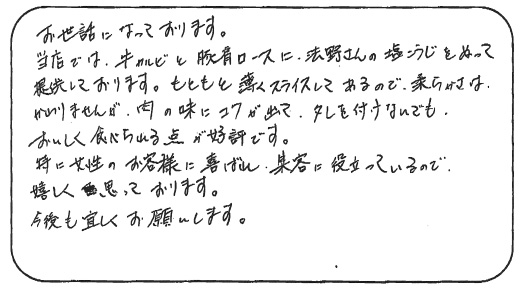 お世話になっております。
当店では、牛カルビと豚肩ロースに、浅野さんの塩こうじをぬって
提供しております。もともと薄くスライスしてあるので、柔らかさは、
かわりませんが、肉の味にコクが出て、タレを付けないでも、
おいしく食べられる点が好評です。
特に女性のお客様に喜ばれ、集客に役立っているので、
嬉しく思っております。
今後も宜しくお願いします。